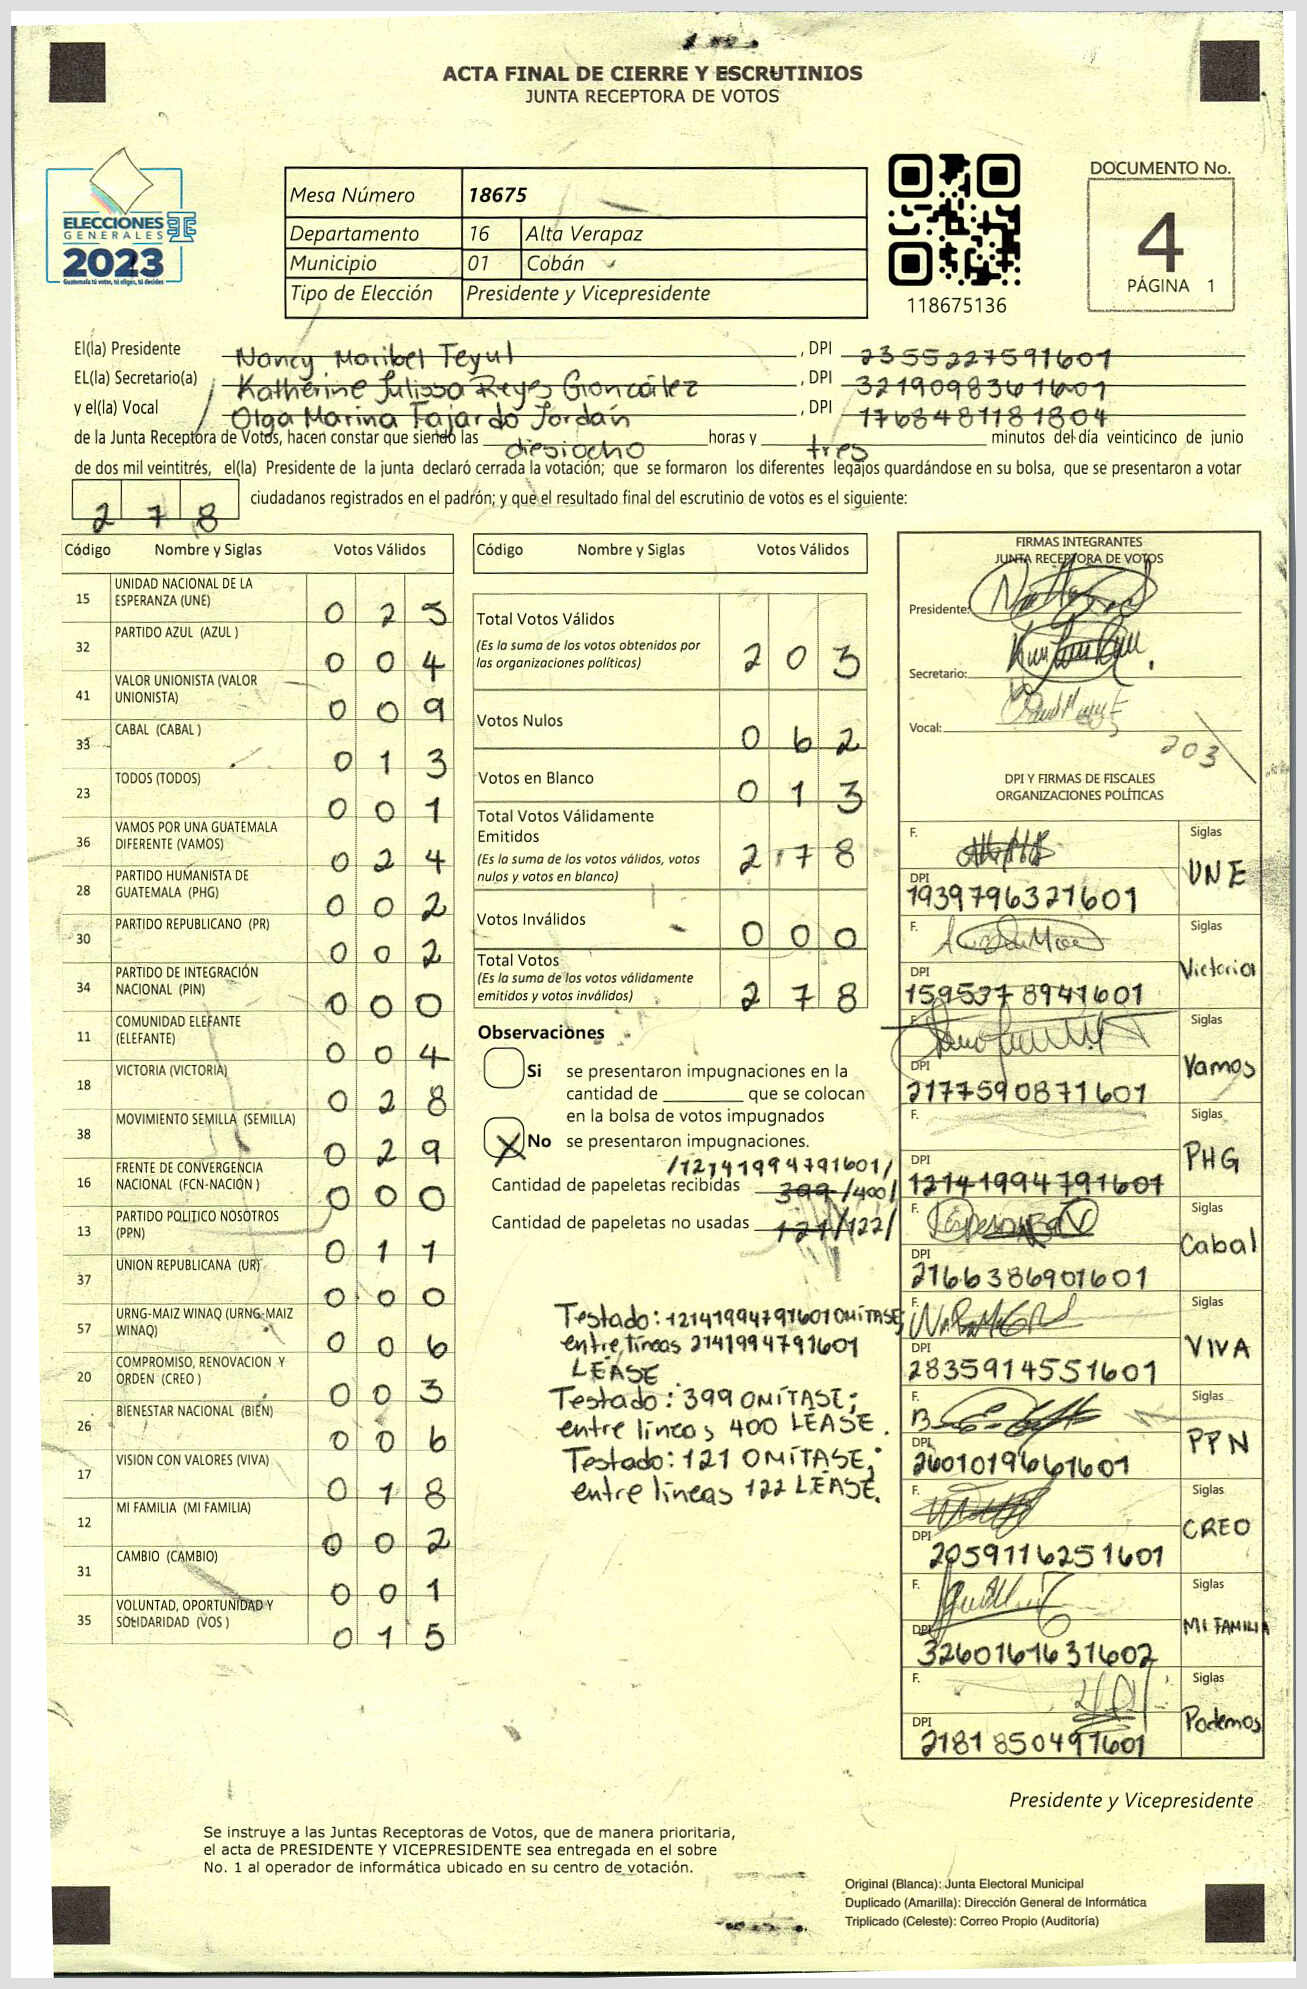 ACTA FINAL DE CIERRE Y ESCRUTINIOS
JUNTA RECEPTORA DE VOTOS
ELECCIONES
GENERALES
2023
Guatemala tú votas, tú eliges, tú decides
Mesa Número 18675
Departamento 16 Alta Verapaz
Municipio 01 Cobán
Tipo de Elección Presidente y Vicepresidente
118675136
DOCUMENTO No.
4
PÁGINA 1
El(la) Presidente Nancy Maribel Teyul, DPI 2355227591601
EL(la) Secretario(a) Katherine Julissa Reyes González, DPI 3219098361601
y el(la) Vocal Olga Marina Fajardo Jordán, DPI 1768481181804
de la Junta Receptora de Votos, hacen constar que siendo las diesiocho horas y tres minutos del día veinticinco de junio
de dos mil veintitrés, el(la) Presidente de la junta declaró cerrada la votación; que se formaron los diferentes legajos guardándose en su bolsa, que se presentaron a votar
278 ciudadanos registrados en el padrón; y que el resultado final del escrutinio de votos es el siguiente:
Código Nombre y Siglas Votos Válidos
15 UNIDAD NACIONAL DE LA ESPERANZA (UNE) 025
32 PARTIDO AZUL (AZUL ) 004
41 VALOR UNIONISTA (VALOR UNIONISTA) 009
33 CABAL (CABAL ) 013
23 TODOS (TODOS) 001
36 VAMOS POR UNA GUATEMALA DIFERENTE (VAMOS) 024
28 PARTIDO HUMANISTA DE GUATEMALA (PHG) 002
30 PARTIDO REPUBLICANO (PR) 002
34 PARTIDO DE INTEGRACIÓN NACIONAL (PIN) 000
11 COMUNIDAD ELEFANTE (ELEFANTE) 004
18 VICTORIA (VICTORIA) 028
38 MOVIMIENTO SEMILLA (SEMILLA) 029
16 FRENTE DE CONVERGENCIA NACIONAL (FCN-NACIÓN ) 000
13 PARTIDO POLITICO NOSOTROS (PPN) 011
37 UNION REPUBLICANA (UR) 000
57 URNG-MAIZ WINAQ (URNG-MAIZ WINAQ) 006
20 COMPROMISO, RENOVACION Y ORDEN (CREO ) 003
26 BIENESTAR NACIONAL (BIEN) 006
17 VISION CON VALORES (VIVA) 018
12 MI FAMILIA (MI FAMILIA) 002
31 CAMBIO (CAMBIO) 001
35 VOLUNTAD, OPORTUNIDAD Y SOLIDARIDAD (VOS ) 015
Código Nombre y Siglas Votos Válidos
Total Votos Válidos 203
(Es la suma de los votos obtenidos por
las organizaciones políticas)
Votos Nulos 062
Votos en Blanco 013
Total Votos Válidamente
Emitidos 278
(Es la suma de los votos válidos, votos
nulos y votos en blanco)
Votos Inválidos 000
Total Votos 278
(Es la suma de los votos válidamente
emitidos y votos inválidos)
Observaciones
Si se presentaron impugnaciones en la
cantidad de ________ que se colocan
en la bolsa de votos impugnados
X No se presentaron impugnaciones.
/121419994791601/
Cantidad de papeletas recibidas 399 /400/
Cantidad de papeletas no usadas 121 /122/
Testado: 12141994791601 OMÍTASE;
entre líneas 2141994791601
LEASE
Testado: 399 OMÍTASE;
entre líneas 400 LEASE.
Testado: 121 OMÍTASE;
entre líneas 122 LEASE.
FIRMAS INTEGRANTES
JUNTA RECEPTORA DE VOTOS
Presidente:
Secretario:
Vocal:
203
DPI Y FIRMAS DE FISCALES
ORGANIZACIONES POLÍTICAS
F. Siglas UNE
DPI 1939796321601
F. Siglas Victoria
DPI 1595378941601
F. Siglas Vamos
DPI 2177590871601
F. Siglas PHG
DPI 12141994791601
F. Siglas Cabal
DPI 2166386901601
F. Siglas VIVA
DPI 2835914551601
F. Siglas PPN
DPI 2601019661601
F. Siglas CREO
DPI 2059116251601
F. Siglas MI FAMILIA
DPI 3260161631602
F. Siglas Podemos
DPI 2181850491601
Presidente y Vicepresidente
Se instruye a las Juntas Receptoras de Votos, que de manera prioritaria,
el acta de PRESIDENTE Y VICEPRESIDENTE sea entregada en el sobre
No. 1 al operador de informática ubicado en su centro de votación.
Original (Blanca): Junta Electoral Municipal
Duplicado (Amarilla): Dirección General de Informática
Triplicado (Celeste): Correo Propio (Auditoría)